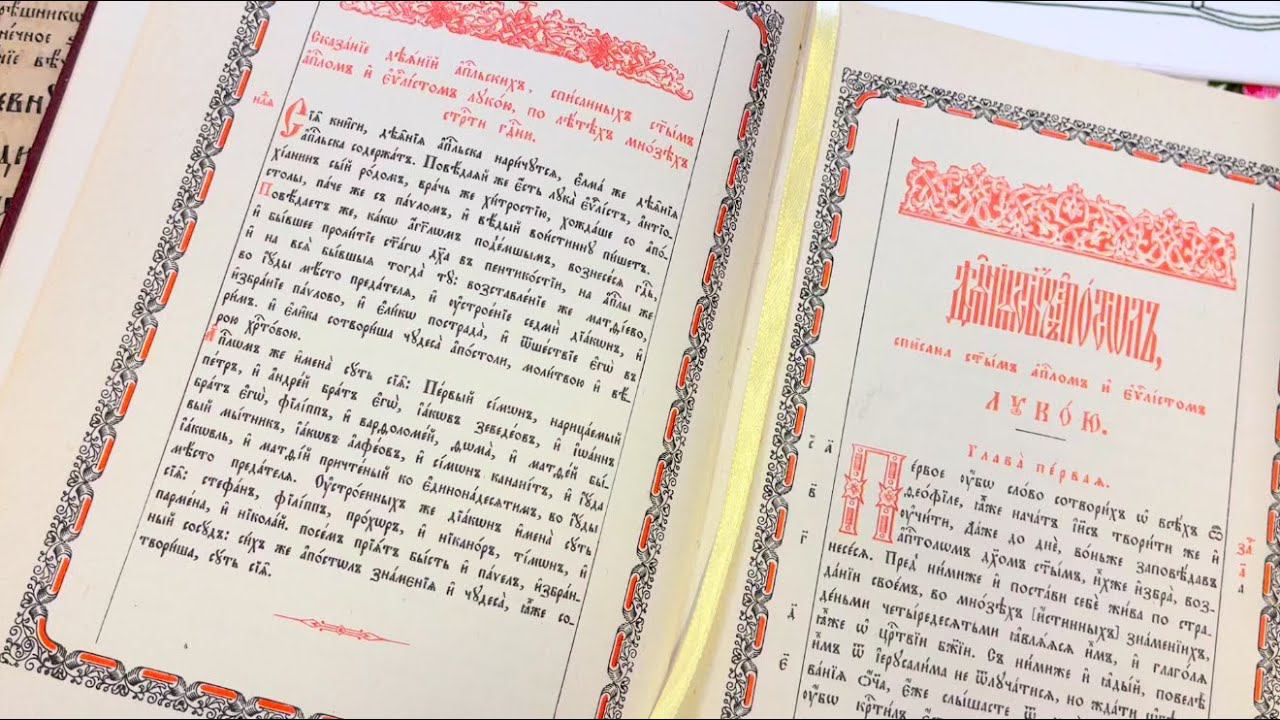 Сказа́нїе дѣѧ́нїй а҆пⷭ҇льскихъ, спи́санныхъ ст҃ы́мъ
а҆пⷭ҇ломъ и҆ є҆ѵⷢ҇лі́стомъ лꙋко́ю, по лѣ́тѣхъ мно́зѣхъ
стрⷭ҇ти гдⷭ҇ни.
Сїѧ̑ кни̑ги, дѣѧ̑нїѧ а҆пⷭ҇льска нарича́ютсѧ, є҆лма́ же дѣѧ̑нїѧ
а҆пⷭ҇льска содержа́тъ. Повѣ́даѧй же є҆́сть лꙋка̀ є҆ѵⷢ҇лі́стъ, а҆нтїо-
хі́анинъ сы́й ро́домъ, вра́чь же хи́тростїю, хожда́ше со а҆по́-
столы, па́че же съ па́ѵломъ, и҆ вѣ́дый вои́стиннꙋ пи́шетъ.
Повѣ́даетъ же, ка́кѡ а҆́гг҃лѡмъ под̾е́мшымъ, вознесе́сѧ гдⷭ҇ь,
и҆ бы́вшее проли́тїе ст҃а́гѡ дх҃а въ пентико́стїи, на а҆пⷭ҇лы же
и҆ на всѧ̑ бы́вшыѧ тогда̀ тꙋ̀: возставле́нїе же матѳі́ево,
во і҆ꙋ́ды мѣ́сто преда́телѧ, и҆ ᲂу҆строе́нїе седмѝ дїа́кѡнъ, и҆
и҆збра́нїе па́ѵлово, и҆ є҆ли̑кѡ пострада̀, и҆ ѿше́ствїе є҆гѡ̀ въ
ри́мъ. и҆ є҆ли̑ка сотвори́ша чꙋдеса̀ а҆по́столи, моли́твою и҆ вѣ́-
рою хрⷭ҇то́вою.
А҆пⷭ҇лѡмъ же и҆мена̀ сꙋ́ть сїѧ̑: Пе́рвый сі́мѡнъ, нарица́емый
пе́тръ, и҆ а҆ндре́й бра́тъ є҆гѡ̀, і҆а́кѡвъ зеведе́овъ, и҆ і҆ѡа́ннъ
бра́тъ є҆гѡ̀, фїлі́ппъ, и҆ варѳоломе́й, ѳѡма̀, и҆ матѳе́й бы́-
вый мы́тникъ, і҆а́кѡвъ а҆лфе́овъ, и҆ сі́мѡнъ канани́тъ, и҆ і҆ꙋ́да
і҆а́кѡвль, и҆ матѳі́й причте́ный ко є҆динона́десѧтимъ, во і҆ꙋ́ды
мѣ́сто преда́телѧ. Оу҆строе́нныхъ же дїа́кѡнъ и҆мена̀ сꙋ́ть
сїѧ̑: стефа́нъ, фїлі́ппъ, про́хѡръ, и҆ нїкано́ръ, ті́мѡнъ, и҆
парме́на, и҆ нїкола́й. посе́мъ прїѧ́тъ бы́сть и҆ па́ѵелъ, и҆збра́н-
ный сосꙋ́дъ: си́хъ же а҆по́столъ зна́мєнїѧ и҆ чꙋдеса̀, ꙗ҆̀же со-
твори́ша, сꙋ́ть сїѧ̑.
спи̑сана ст҃ы́мъ а҆пⷭ҇ломъ и҆ є҆ѵⷢ҇лі́стомъ
ЛꙊКО́Ю.
Глава̀ пе́рваѧ.
Пе́рвое ᲂу҆́бѡ сло́во сотвори́хъ ѡ҆ всѣ́хъ ѽ
ѳеоفі́ле, ꙗ҆̀же нача́тъ і҆и҃съ твори́ти же и҆
ᲂу҆чи́ти, Да́же до днѐ, во́ньже заповѣ́давъ
а҆пⷭ҇толѡмъ дх҃омъ ст҃ы́мъ, и҆̀хже и҆збра̀, воз-
несе́сѧ. Пред̾ ни́миже и҆ поста́ви себѐ жи́ва по стра-
да́нїи свое́мъ, во мно́зѣхъ [и҆́стинныхъ] зна́менїихъ,
де́ньми четы́редесѧтьми ꙗ҆влѧ́ѧсѧ и҆̀мъ, и҆ глаго́лѧ
ꙗ҆̀же ѡ҆ црⷭ҇твїи бж҃їи. Съ ни́миже и҆ ꙗ҆ды́й, повелѣ̀
и҆̀мъ ѿ і҆ерꙋсали́ма не ѿлꙋча́тисѧ, но жда́ти ѡ҆бѣто-
ва́нїѧ ѻ҆́ч҃а, є҆́же слы́шасте ѿ